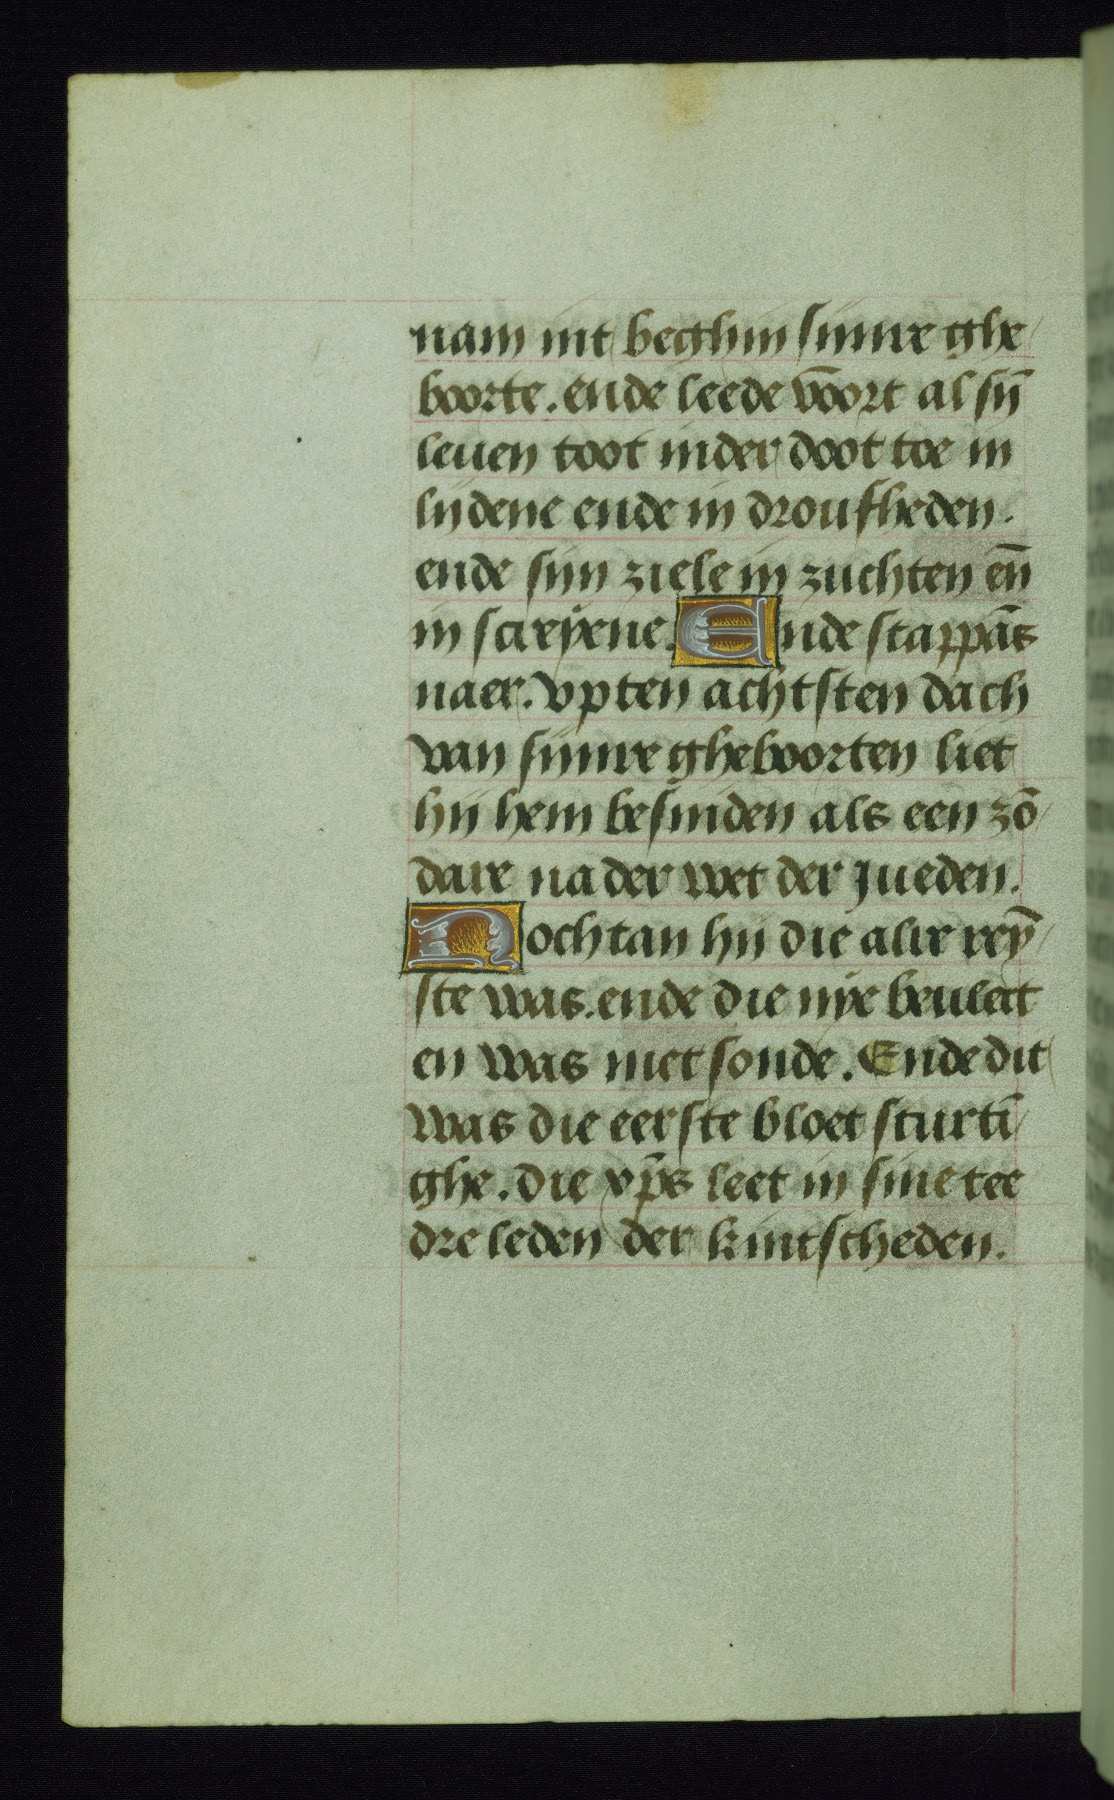 nam int beghin sijnre ghe
boorte. ende leede vōort al sijn̄
leuen toot inder doot toe in
lijdene ende in droufheden.
ende sijn ziele in zuchten en̄
in screyene. Ende stappās
naer. vp ten achtsten dach
van sijnre gheboorten liet
hij hem besniden als een zō
dare na der wet der jueden.
Nochtan hij die alre reyn̄
ste was. ende die nye beulect
en was met sonde. Ende dit
was die eerste bloet sturtī
ghe. die xp̄s leet in sine tee
dre leden der kintscheden.